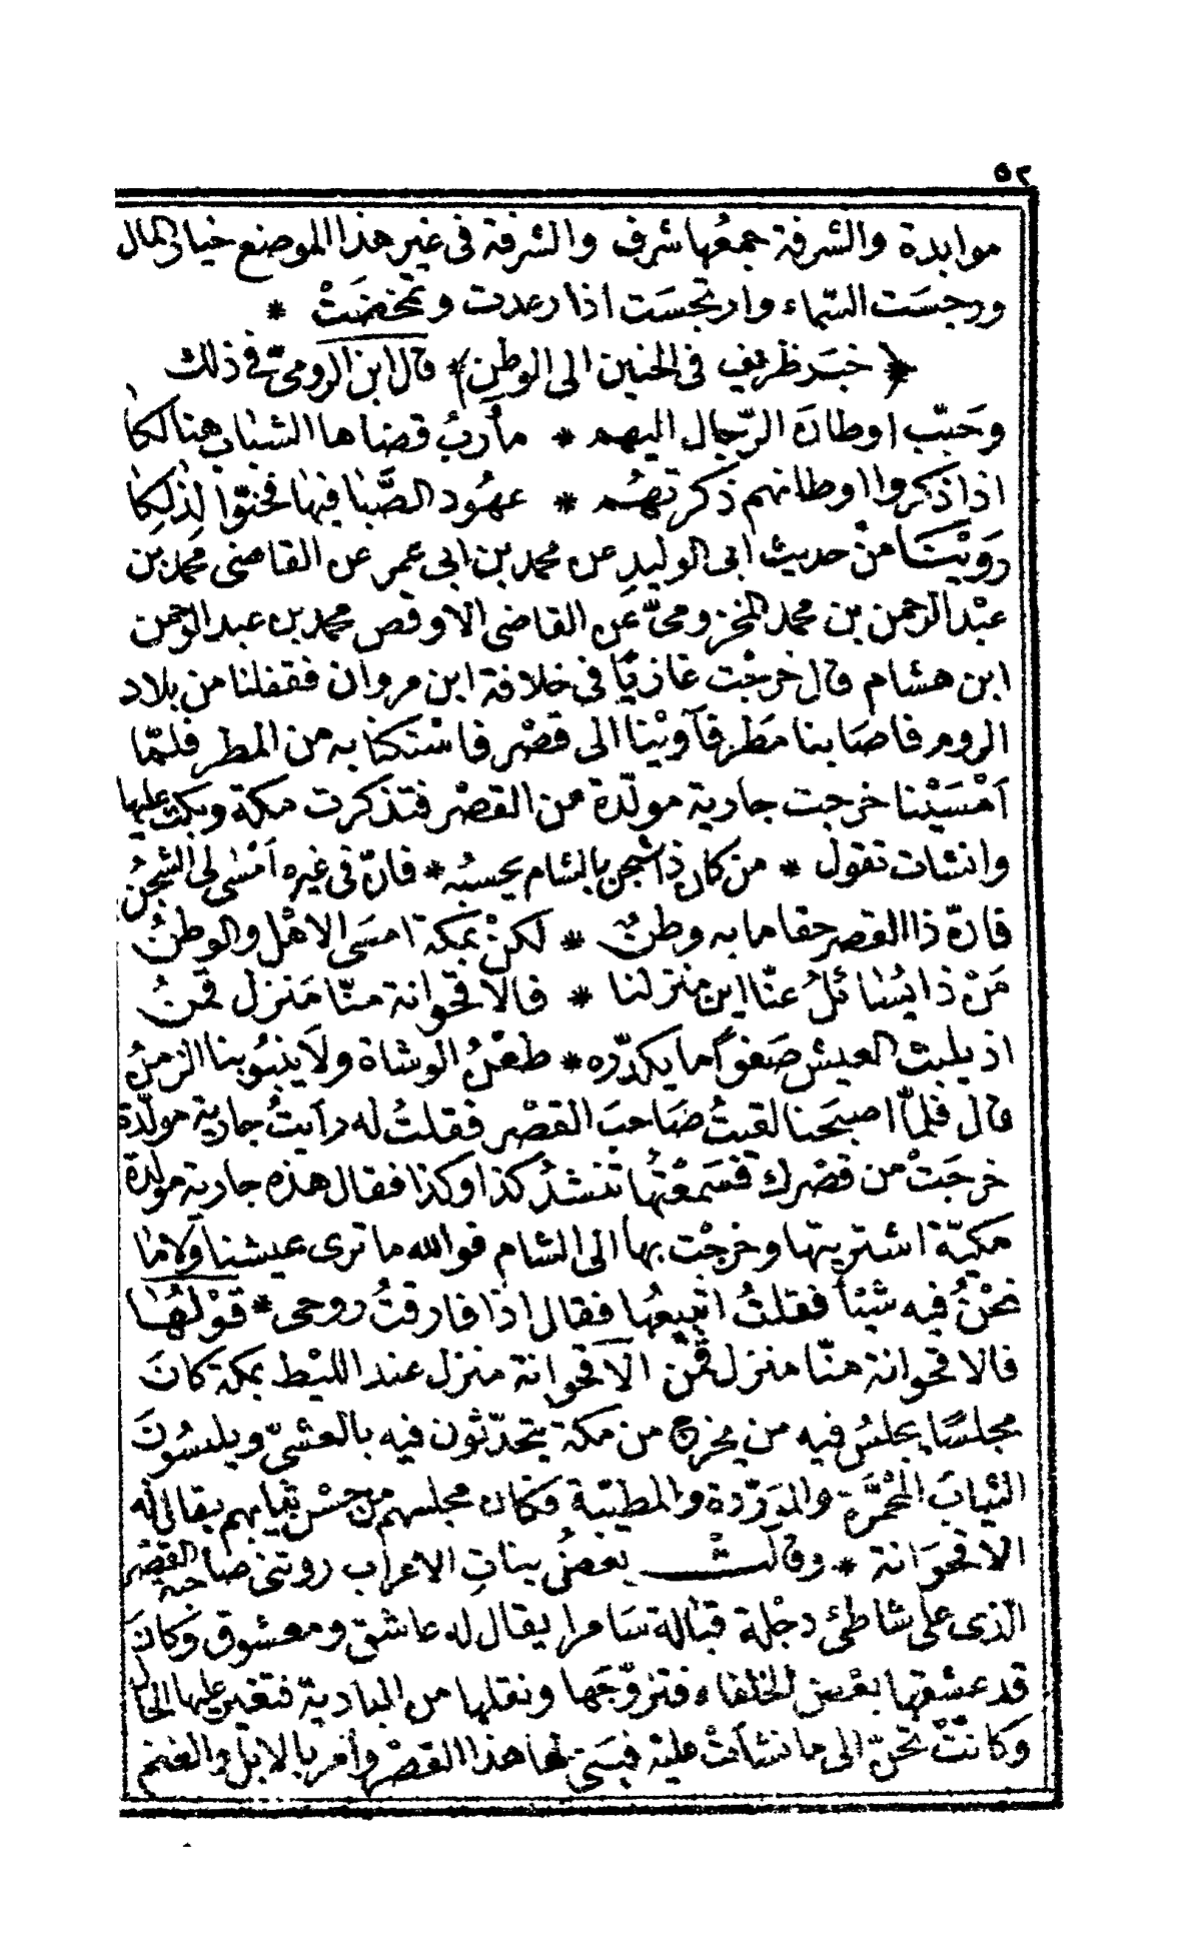 ٥٢
موابدة والشرفة جمعُها شرف والشرفة فى غير هذا الموضع خيار المال
ورجسَت السّماء وارتجسَت اذا رعدت وتمخضَتْ *
﴿ خبَر ظريف فى الحنين الى الوطن ﴾ قال ابن الرومىّ فى ذلك
وحَبّب اوطانَ الرّجال اليهم * مأربُ قضاها الشباب هنالكا
اذا ذكروا اوطانهم ذكرتهُم * عهُود الصَّبا فيها فحنّوا لِذلِكا
رَوَيْنَا منْ حديث ابى الوليدِ عن محمد بن ابى عمر عن القاضى محمد بن
عبْد الرحمن بن محمد المخزومىّ عَن القاضى الاوقص محمد بن عبد الرحمن
ابن هشام قال خرجْت غازيًا فى خلافة ابن مروان فقفلنا من بلاد
الروم فاصَابنا مَطر فآوَيْنا الى قصْر فاسْتكنا به من المطر فلمّا
اَمْسَيْنا خرجت جارية مولّدة من القصْر فتذكرت مكة وبكت عليها
وانشات تقول * من كان ذا شجن بالشام يحسبُه * فانّ فى غيره اَمْسٰى لى الشجنُ
فانّ ذا القصر حقا ما به وطنٌ * لكنْ بمكة امسَى الاهْل والوطنُ
مَنْ ذا يُسٰائلُ عنّا اين منزلنا * فالاقحوانة منّا مَنزل قمنُ
اذ يلبث العيش صَفوًا ما يكدّره * طعْنُ الوشاة ولاَ ينبُو بنا الزمنُ
قال فلمّا اصبَحنا لقيتُ صَاحبَ القصْر فقلتُ له رأيتُ جارية مولّدة
خرجَتْ من قصْرك فسَمعْتُها تنشدُ كذا وكذا فقال هذه جارية مولدة
مكيّة اشتريتها وخرجْت بها الى الشام فوالله ما ترى عيشنا ولا ما
نحْنُ فيه شيْأ فقلتُ اتبيعُها فقال اذا فارقتُ روحى * قوْلهُا
فالاقحوانة منّا منزل قمن الاَقحوانة منزل عند الليْط بمكة كانَ
مجلسًا يجلسُ فيه من يخرج من مكة يتحدّثون فيه بالعشىّ ويلبسُونَ
الثيابَ المحْمَّرَة والمورّدة والمطيّبة فكان مجلسهم من حسْن ثيابهم يقال له
الاقحوَانة * وقالَتْ بعضُ بناتِ الاعْراب روتنى صاحبة القصْر
الّذى على شاطئ دجْلة قبٰالة سَامرا يقال له عاشق ومعْشوق وَكانَ
قد عشقها بعْض الخلفاء فتزوّجَها ونقلها من البادية فتغير عليها الحال
وَكانَتْ تحنّ الى ما نشأتْ عليْه فبَنى لها هذا القصْر وأمر بالابل والغنم